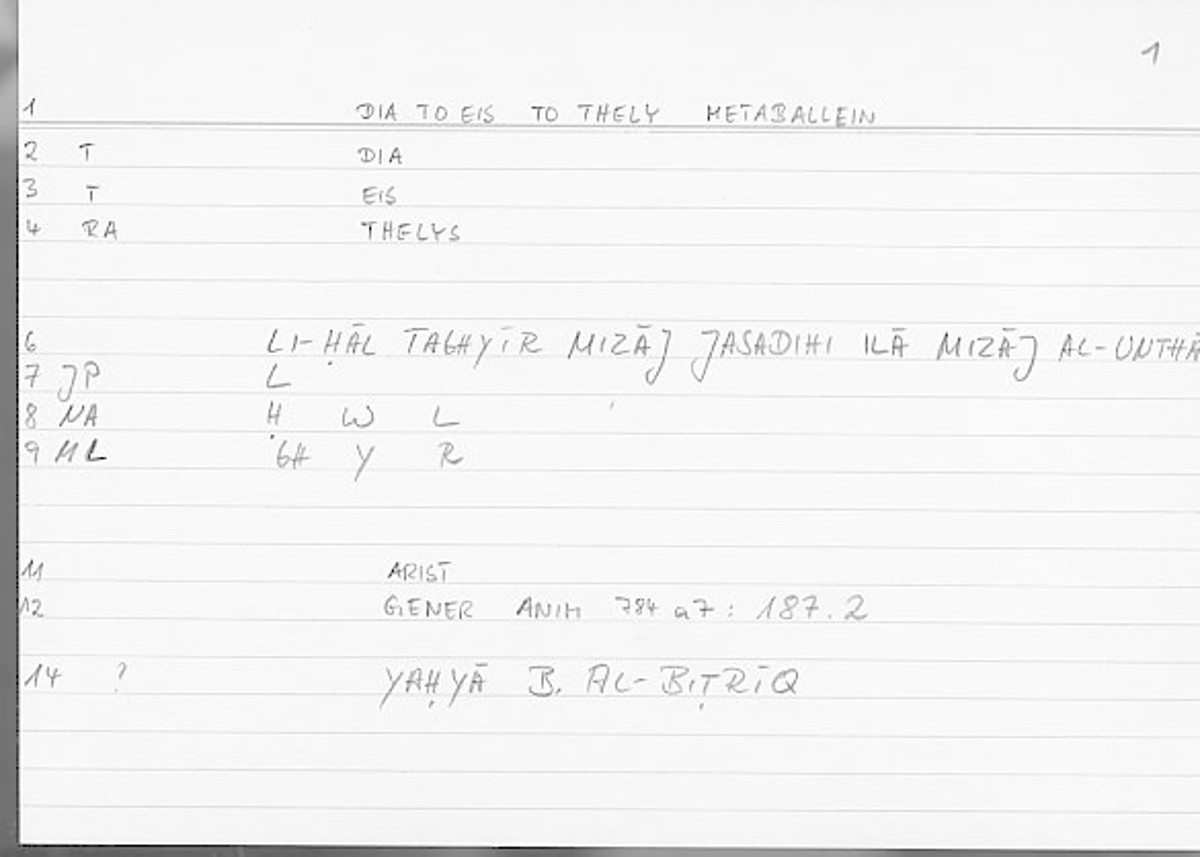 1
1 DIA TO EIS TO THELY METABALLEIN
2 T DIA
3 T EIS
4 RA THELYS
6 LI-ḤĀL TAGHYĪR MIZĀJ JASADIHI ILĀ MIZĀJ AL-UNTHĀ
7 JP L
8 NA Ḥ W L
9 ML GH Y R
11 ARIST
12 GENER ANIM 784 a7: 187.2
14 ? YAḤYĀ B. AL-BIṬRĪQ